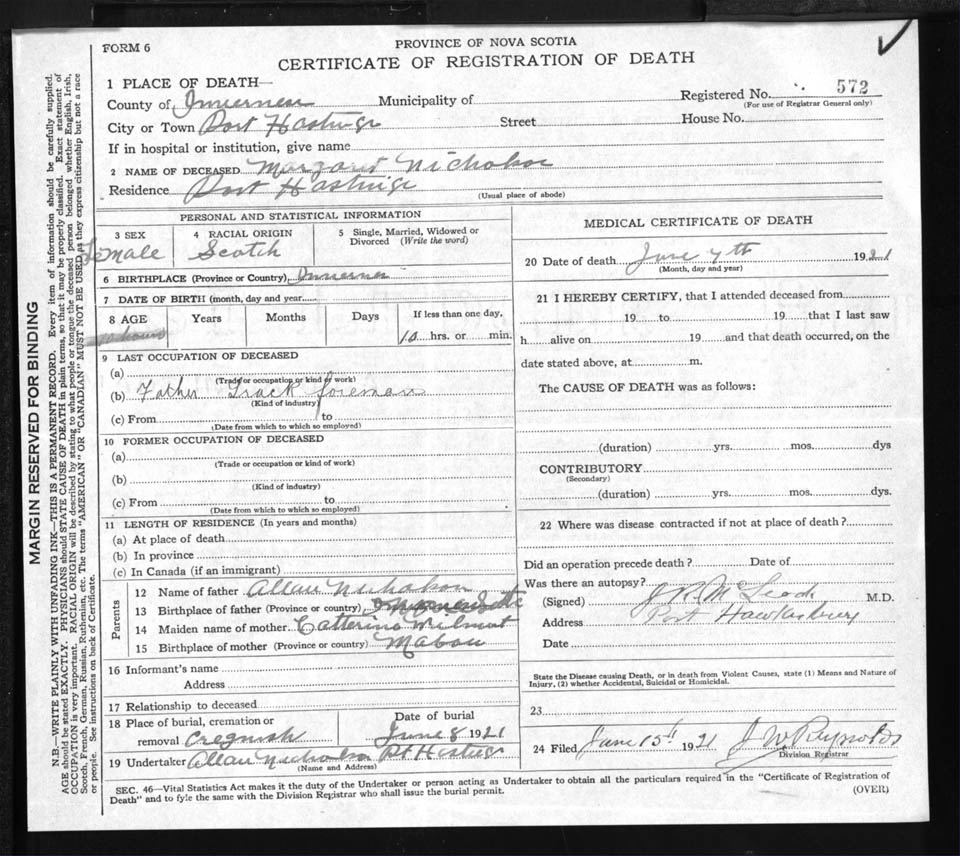 FORM 6
PROVINCE OF NOVA SCOTIA
CERTIFICATE OF REGISTRATION OF DEATH
1 PLACE OF DEATH—
County of Inverness Municipality of Registered No. 572
(For use of Registrar General only)
City or Town Port Hastings Street House No.
If in hospital or institution, give name
2 NAME OF DECEASED Margaret Nicholson
Residence Port Hastings
(Usual place of abode)
PERSONAL AND STATISTICAL INFORMATION
3 SEX 4 RACIAL ORIGIN 5 Single, Married, Widowed or Divorced (Write the word)
Female Scotch
6 BIRTHPLACE (Province or Country), Inverness
7 DATE OF BIRTH (month, day and year
8 AGE Years Months Days If less than one day,
10 hours 10 hrs. or min.
9 LAST OCCUPATION OF DECEASED
(a)
(Trade or occupation or kind of work)
(b) Father Track foreman
(Kind of industry)
(c) From to
(Date from which to which so employed)
10 FORMER OCCUPATION OF DECEASED
(a)
(Trade or occupation or kind of work)
(b)
(Kind of industry)
(c) From to
(Date from which to which so employed)
11 LENGTH OF RESIDENCE (In years and months)
(a) At place of death
(b) In province
(c) In Canada (if an immigrant)
Parents
12 Name of father Allan Nicholson
13 Birthplace of father (Province or country),
14 Maiden name of mother. Catterina Wilmot
15 Birthplace of mother (Province or country) Mabou
16 Informant's name
Address
17 Relationship to deceased
18 Place of burial, cremation or removal Cregnish Date of burial June 8 1921
19 Undertaker Allan Nicholson Pt Hastings
(Name and Address)
MEDICAL CERTIFICATE OF DEATH
20 Date of death June 7th 1921
(Month, day and year)
21 I HEREBY CERTIFY, that I attended deceased from
19 to 19 that I last saw
h alive on 19 and that death occurred, on the
date stated above, at m.
The CAUSE OF DEATH was as follows:
(duration) yrs. mos. dys
CONTRIBUTORY
(Secondary)
(duration) yrs. mos. dys.
22 Where was disease contracted if not at place of death?
Did an operation precede death? Date of
Was there an autopsy?
(Signed) M.D.
Address Port Hawkesbury
Date
State the Disease causing Death, or in death from Violent Causes, state (1) Means and Nature of
Injury, (2) whether Accidental, Suicidal or Homicidal.
23
24 Filed June 15th 1921 J W Reynolds
Division Registrar
SEC. 46—Vital Statistics Act makes it the duty of the Undertaker or person acting as Undertaker to obtain all the particulars required in the "Certificate of Registration of
Death" and to fyle the same with the Division Registrar who shall issue the burial permit.
(OVER)
MARGIN RESERVED FOR BINDING
N.B.—WRITE PLAINLY WITH UNFADING INK—THIS IS A PERMANENT RECORD. Every item of information should be carefully supplied.
AGE should be stated EXACTLY. PHYSICIANS should STATE CAUSE OF DEATH in plain terms, so that it may be properly classified. Exact statement of
OCCUPATION is very important. RACIAL ORIGIN will be described by stating to what people or tongue the deceased person belonged whether English, Irish,
Scotch, French, German, Russian, Ruthenian, etc. The terms "AMERICAN" OR "CANADIAN" MUST NOT BE USED as they express citizenship but not a race
or people. See instructions on back of Certificate.